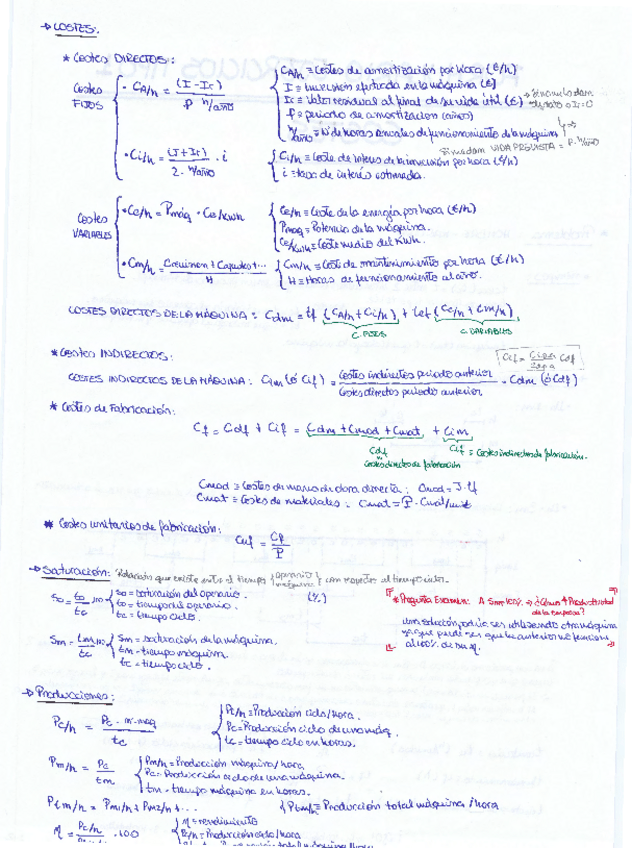 → COSTES:
* Costes DIRECTOS:
Costes FIJOS
• CA/h = (I - Ir) / P · h/año
CA/h ≡ Costes de amortización por hora (€/h)
I ≡ Inversión efectuada en la máquina (€)
Ir ≡ Valor residual al final de su vida útil (€) → Si no lo dan
P ≡ periodo de amortización (años)
h/año ≡ Nº de horas anuales de funcionamiento de la máquina
Si me dan VIDA PREVISTA = P · h/año
• Ci/h = (I + Ir) / 2 · h/año · i
Ci/h ≡ Coste de interés de la inversión por hora (€/h)
i ≡ tasa de interés estimada.
Costes VARIABLES
• Ce/h = Pmáq · Ce/kwh
Ce/h ≡ Coste de la energía por hora (€/h)
Pmaq ≡ Potencia de la máquina.
Ce/kwh ≡ Coste medio del kwh.
• Cm/h = Cconsumen + Creparados + ... / H
Cm/h ≡ Coste de mantenimiento por hora (€/h)
H ≡ Horas de funcionamiento al año.
COSTES DIRECTOS DE LA MÁQUINA: Cdm = tf (CA/h + Ci/h) + tef (Ce/h + Cm/h)
C. FIJOS
C. VARIABLES
* Costes INDIRECTOS:
COSTES INDIRECTOS DE LA MÁQUINA: Cim (ó Cif) = Costes indirectos periodo anterior / Costes directos periodo anterior · Cdm (ó Cdf)
* Costes de Fabricación:
Cf = Cdf + Cif = Cdm + Cmod + Cmat + Cim
Cdf
Cif ≡ Costes indirectos de fabricación.
Costes directos de fabricación
Cmod ≡ Costes de mano de obra directa: Cmod = J · tf
Cmat ≡ Costes de materiales: Cmat = P · Cmat/unit
* Costes unitarios de fabricación:
Cuf = Cf / P
→ Saturación: Relación que existe entre el tiempo (operario / máquina) con respecto al tiempo ciclo.
So = to / tc · 100
So = Saturación del operario. (%)
to = tiempo del operario.
tc = tiempo ciclo.
* Pregunta Examen: A Sm=100% → ¿Cómo ↑ Productividad de la empresa?
Una solución podría ser utilizando otra máquina
ya que puede ser que la anterior no funcione
al 100% de su
Sm = tm / tc · 100
Sm = saturación de la máquina.
tm - tiempo máquina.
tc = tiempo ciclo.
→ Producciones:
Pc/h = Pc · nº maq / tc
Pc/h = Producción ciclo/hora.
Pc = Producción ciclo de una máq.
tc = tiempo ciclo en horas.
Pm/h = Pc / tm
Pm/h = Producción máquina/hora.
Pc = Producción ciclo de una máquina.
tm - tiempo máquina en horas.
Ptm/h = Pm1/h + Pm2/h + ...
Ptm/h = Producción total máquina / hora
η = Pc/h · 100
η = rendimiento
Pc/h = Producción ciclo/hora